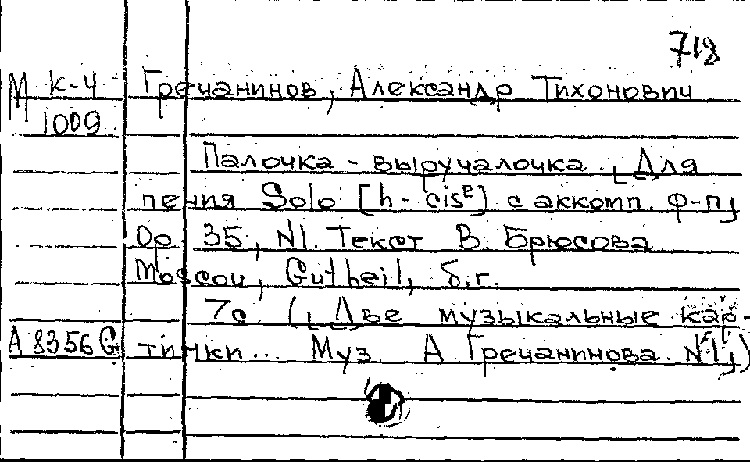 718
М К-4 Гречанинов, Александр Тихонович
1009
Палочка - выручалочка. [Для
пения Solo [h - cis²] с аккомп. ф-п]
Op. 35, N1. Текст В. Брюсова
Moscou, Gutheil, б.г.
7с. ([Две музыкальные кар-
A 8356 G тинки... Муз. А Гречанинова. N1])